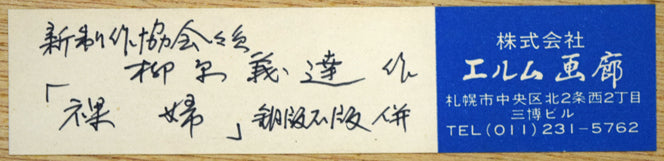 新制作協会々員
柳原義達作
「裸婦」銅版石版併
株式会社
エルム画廊
札幌市中央区北2条西2丁目
三博ビル
TEL(011)231-5762